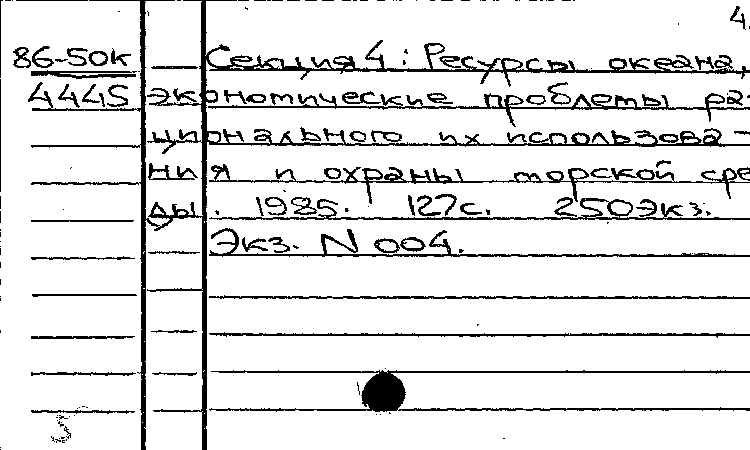 4.
86-50к Секция 4: Ресурсы океана,
4445 экономические проблемы ра-
ционального их использова-
ния и охраны морской сре-
ды. 1985. 127с. 250экз.
Экз. N 004.
5